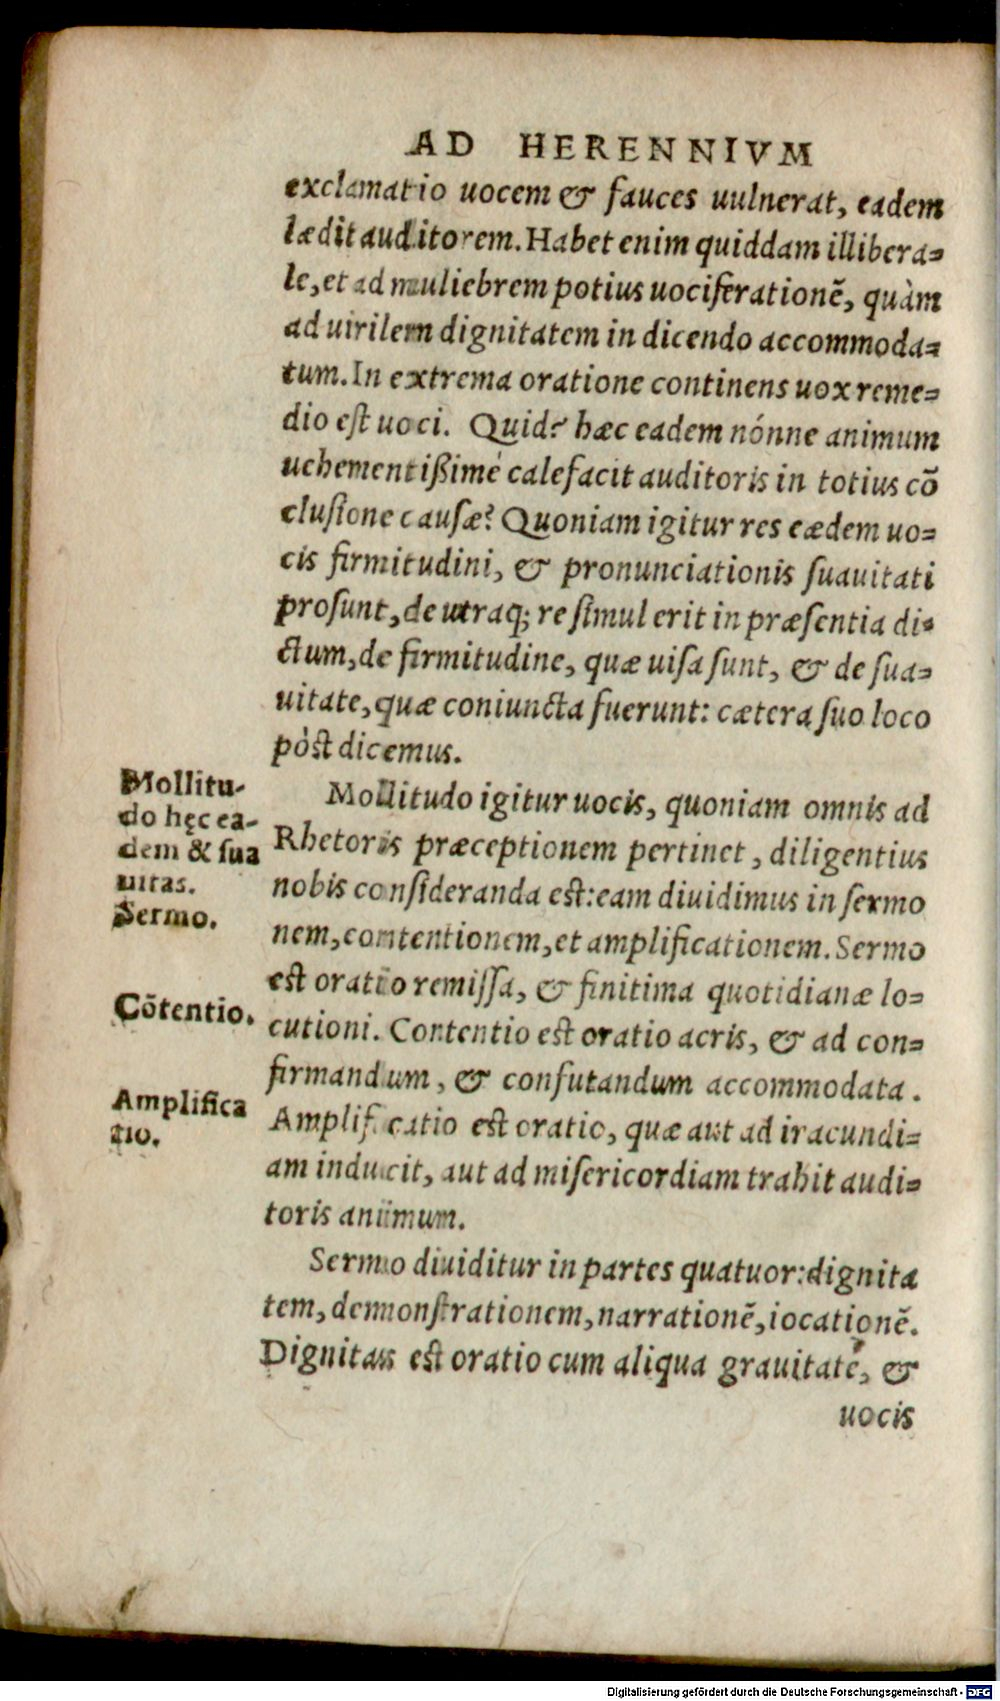 AD HERENNIVM
exclamatio uocem & fauces uulnerat, eadem
lædit auditorem. Habet enim quiddam illibera=
le, et ad muliebrem potius uociferationẽ, quàm
ad uirilem dignitatem in dicendo accommoda=
tum. In extrema oratione continens uox reme=
dio est uoci. Quid? hæc eadem nónne animum
uehementißimè calefacit auditoris in totius cõ
clusione causæ? Quoniam igitur res eædem uo=
cis firmitudini, & pronunciationis suauitati
prosunt, de utraq; re simul erit in præsentia di=
ctum, de firmitudine, quæ uisa sunt, & de sua=
uitate, quæ coniuncta fuerunt: cætera suo loco
pòst dicemus.
Mollitu-
do hęc ea-
dem & sua
uitas.
Sermo.
Mollitudo igitur uocis, quoniam omnis ad
Rhetoris præceptionem pertinet, diligentius
nobis consideranda est: eam diuidimus in sermo
nem, contentionem, et amplificationem. Sermo
est oratio remissa, & finitima quotidianæ lo=
Cõtentio.
cutioni. Contentio est oratio acris, & ad con=
firmandum, & confutandum accommodata.
Amplifica
tio.
Amplificatio est oratio, quæ aut ad iracundi=
am inducit, aut ad misericordiam trahit audi=
toris animum.
Sermo diuiditur in partes quatuor: dignita
tem, demonstrationem, narrationẽ, iocationẽ.
Dignitas est oratio cum aliqua grauitate, &
uocis
Digitalisierung gefördert durch die Deutsche Forschungsgemeinschaft - DFG